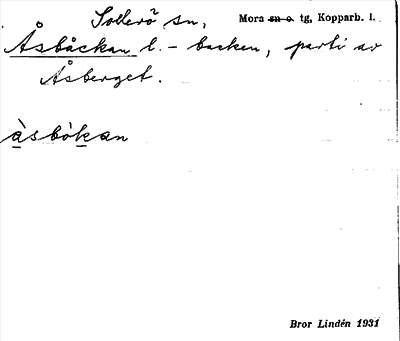 Sollerö sn, Mora sn o. tg, Kopparb. l.
Åsbåckan l. - backen, parti av
Åsberget.
àsbò̀kan
Bror Lindén 1931